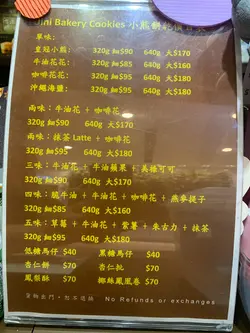 Jini Bakery Cookies 小熊餅乾價目表
單味:
皇冠小熊: 320g 細$90 640g 大$170
牛油花花: 320g 細$85 640g 大$160
咖啡花花: 320g 細$95 640g 大$180
沖繩海鹽: 320g 細$95 640g 大$180
兩味:牛油花 + 咖啡花
320g 細$90 640g 大$170
兩味:抹茶 Latte + 咖啡花
320g 細$95 640g 大$180
三味:牛油花 + 牛油蘋果 + 美祿可可
320g 細$90 640g 大$170
四味:脆牛油 + 牛油花 + 咖啡花 + 燕麥提子
320g 細$85 640g 大$160
五味:草莓 + 牛油花 + 紫薯 + 朱古力 + 抹茶
320g 細$95 640g 大$180
低糖馬仔 $40 黑糖馬仔 $40
杏仁餅 $70 杏仁批 $70
鳳梨酥 $70 椰絲鳳凰卷 $70
貨物出門,恕不退換 No Refunds or exchanges